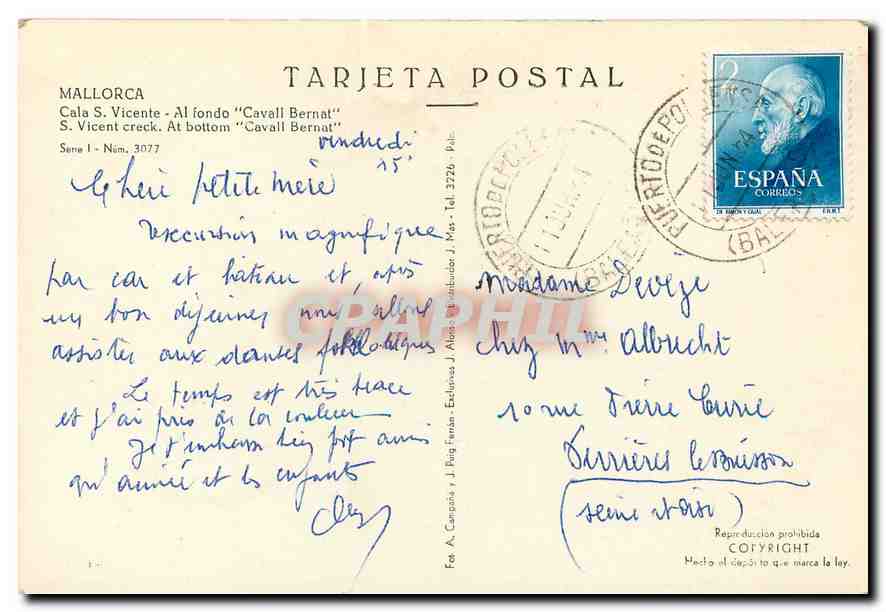 TARJETA POSTAL
MALLORCA
Cala S. Vicente - Al fondo "Cavall Bernat"
S. Vicent creck. At bottom "Cavall Bernat"
Serie I - Núm. 3077
vendredi
15
petite mère
excursion magnifique
par car et bateau et après
un bon déjeuner nous allons
assister aux danses folkloriques
Le temps est très
et j'ai pris de la couleur
Je t'embrasse bien fort ainsi
qu' et les enfants
Fot. A. Campaña y J. Puig Ferrán - Exclusivas J. Alonso - Distribuidor J. Mas - Tel. 3226 - Palma
CPAPHIL
PUERTO DE POLLENSA
(BALEARES)
PUERTO DE POLLENSA
(BALEARES)
2
PTS
ESPAÑA
CORREOS
DR. RAMON Y CAJAL F.N.M.T.
Madame Devèze
chez Mme Albrecht
10 rue Pierre Curie
Verrières le Buisson
(Seine et Oise)
Reproducción prohibida
COPYRIGHT
Hecho el depósito que marca la ley.